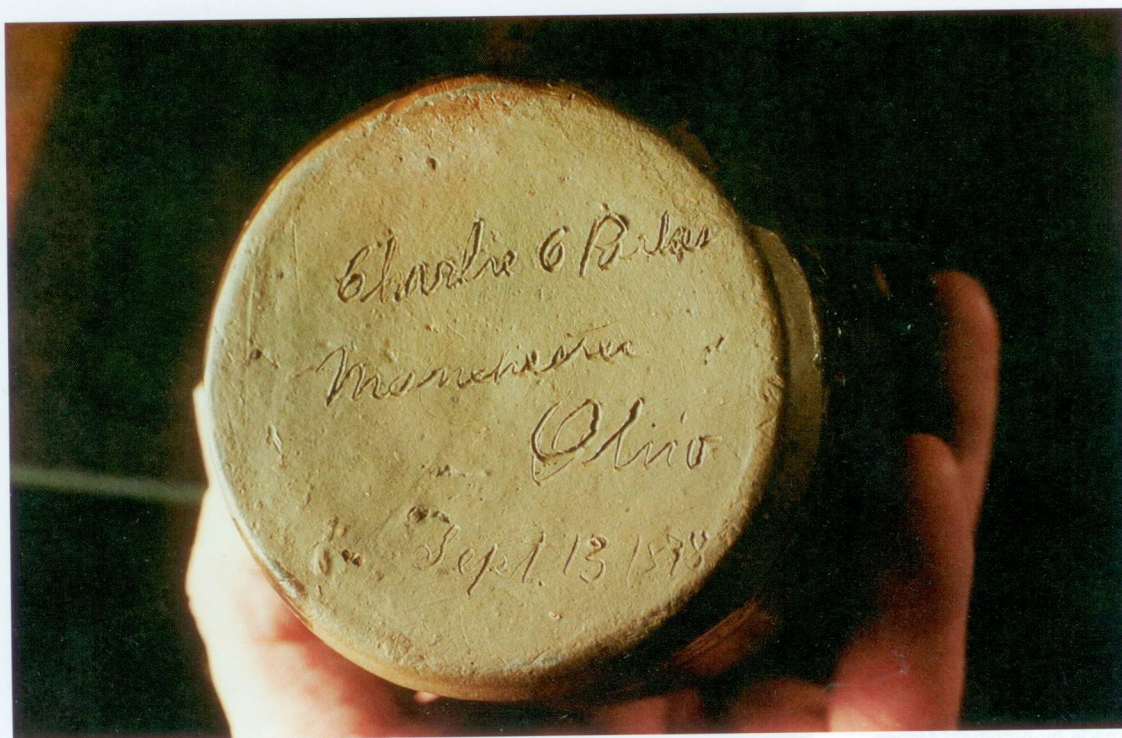 Charlie
Manchester
Ohio
Sept. 13 1898